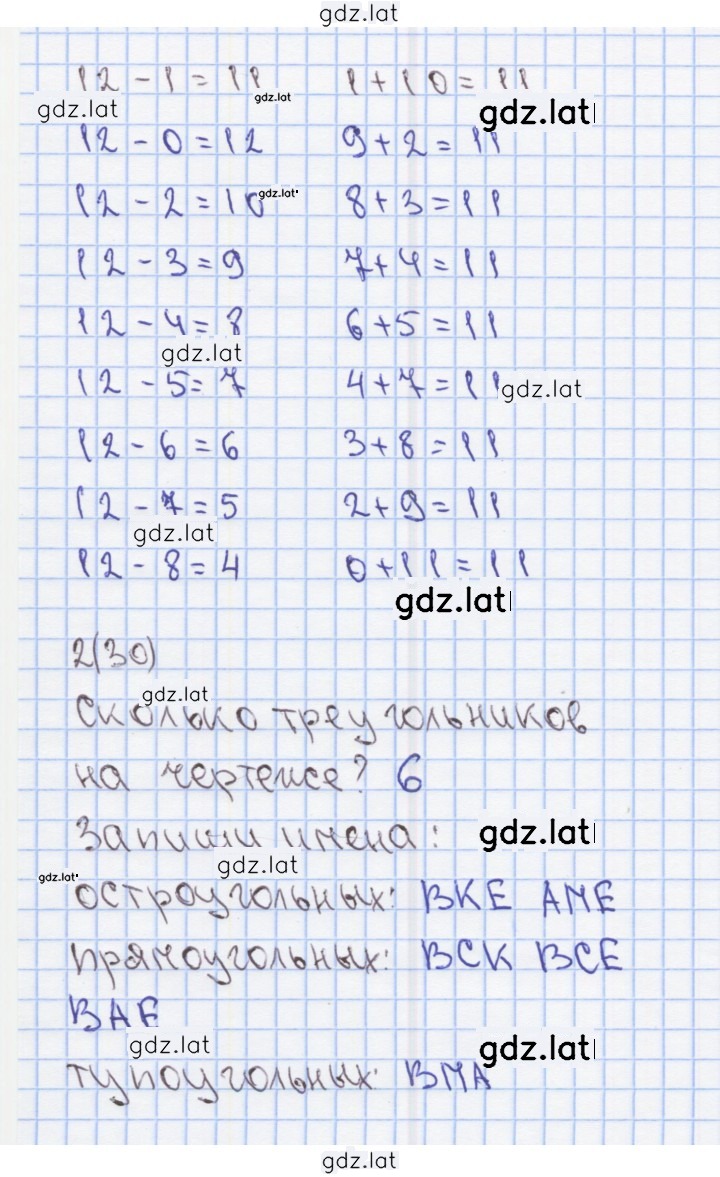 gdz.lat
12 - 1 = 11 1 + 10 = 11
gdz.lat gdz.lat gdz.lat
12 - 0 = 12 9 + 2 = 11
12 - 2 = 10 gdz.lat 8 + 3 = 11
12 - 3 = 9 7 + 4 = 11
12 - 4 = 8 6 + 5 = 11
gdz.lat
12 - 5 = 7 4 + 7 = 11 gdz.lat
12 - 6 = 6 3 + 8 = 11
12 - 7 = 5 2 + 9 = 11
gdz.lat
12 - 8 = 4 0 + 11 = 11
gdz.lat
2(30)
gdz.lat
Сколько треугольников
на чертеже? 6
Запиши имена: gdz.lat
gdz.lat gdz.lat
остроугольных: ВКЕ АМЕ
прямоугольных: ВСК ВСЕ
ВАЕ
gdz.lat gdz.lat
тупоугольных: ВМА
gdz.lat